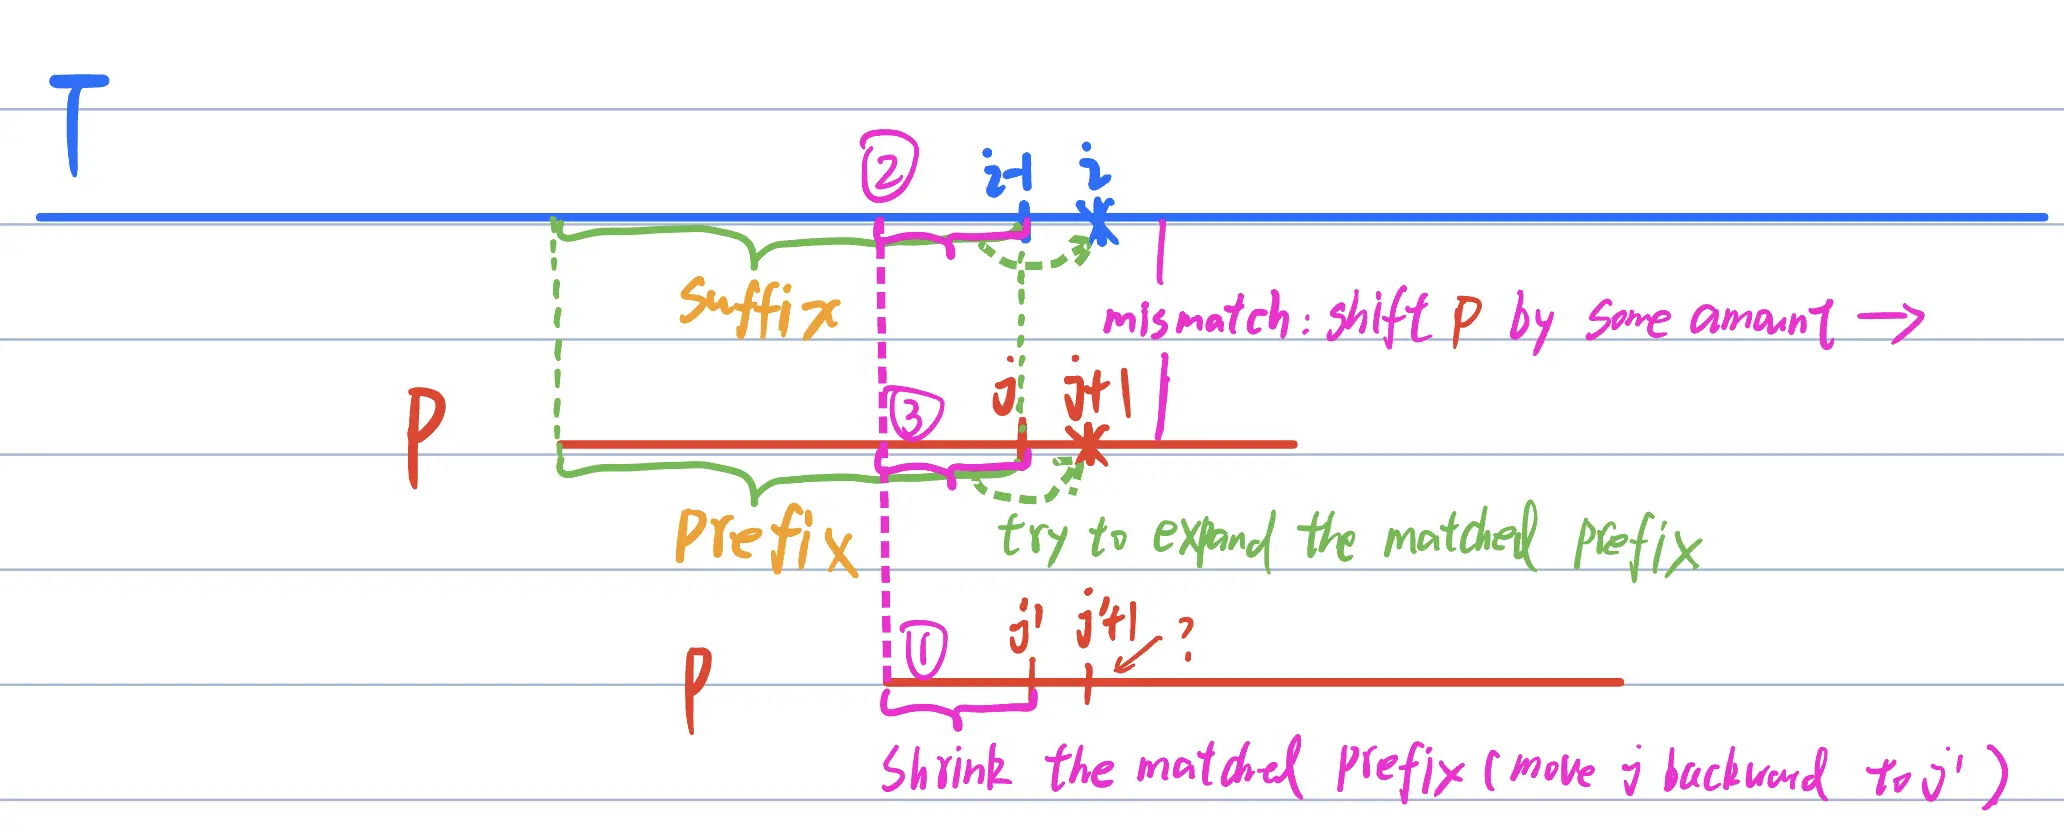 T
② i-1 i
suffix
mismatch: shift P by some amount →
P ③ j j+1
prefix
try to expand the matched prefix
P ① j' j'+1 ?
shrink the matched prefix (move j backward to j')